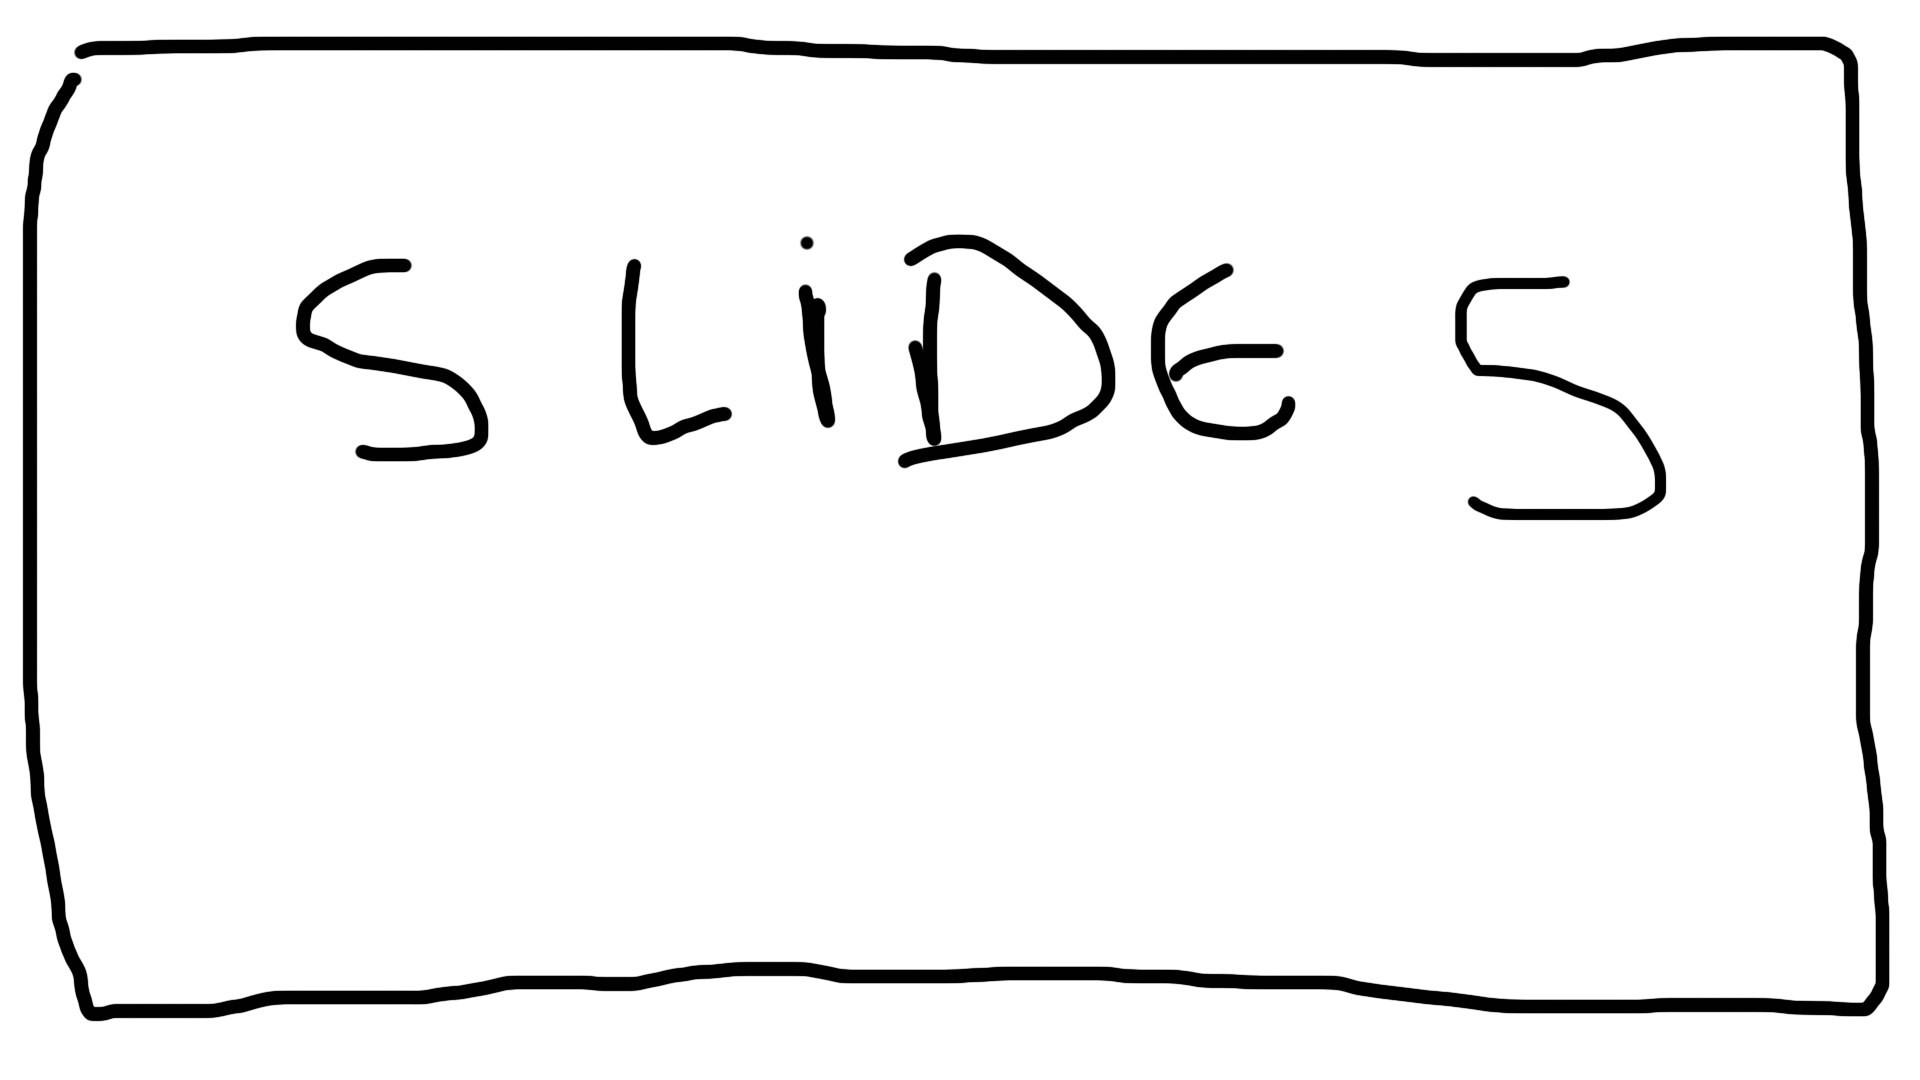 SLiDE 5